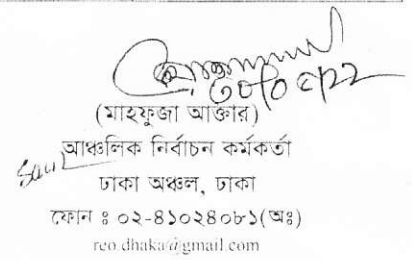 (মাহফুজা আক্তার)
আঞ্চলিক নির্বাচন কর্মকর্তা
ঢাকা অঞ্চল, ঢাকা
ফোন ঃ ০২-৪১০২৪০৮১(অঃ)
reo.dhaka@gmail.com